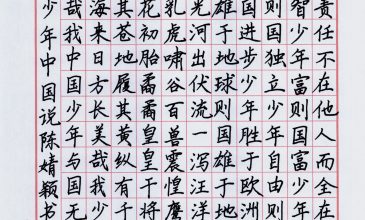 责任不在他人而全在
智少年富则国富少年
则国独立少年自由则
国进步少年胜于欧洲
雄于地球则国雄于地
光河出伏流一泻汪洋
乳虎啸谷百兽震惶鹰
花初胎矞矞皇皇干将
其苍地履其黄纵有千
海来日方长美哉我少
哉我中国少年与国无
少年中国说陈婧颖书